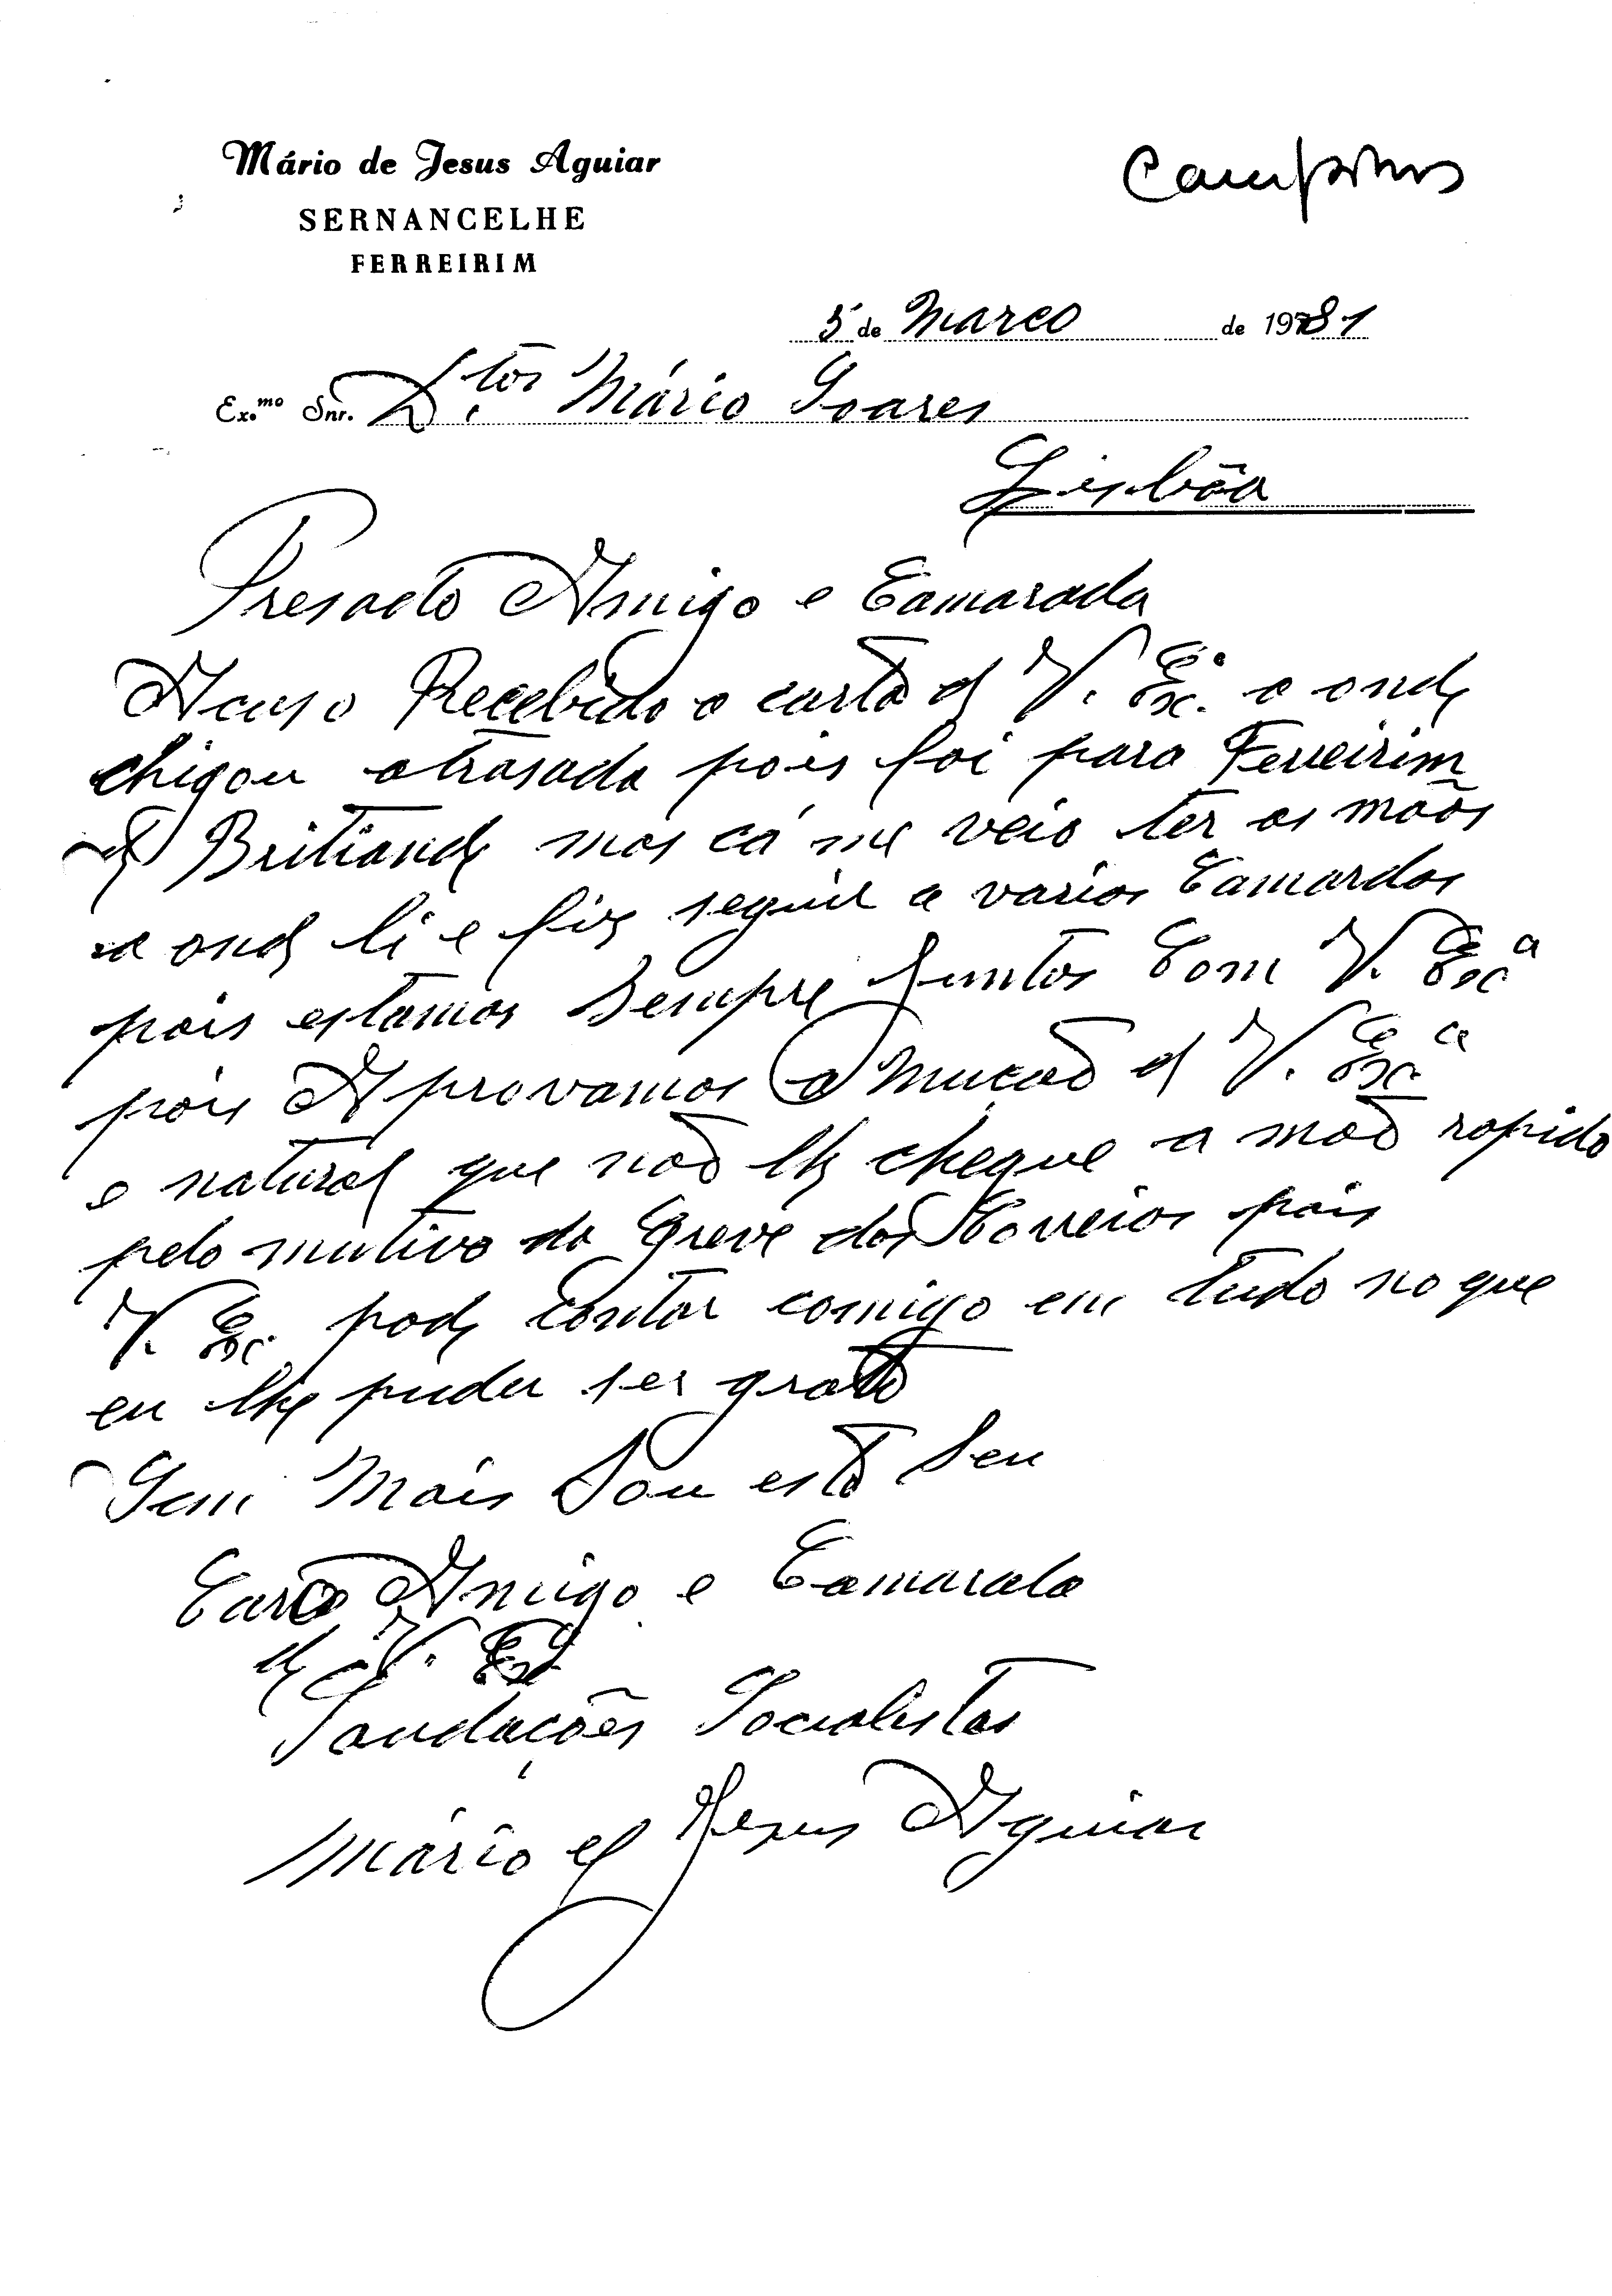 Mário de Jesus Aguiar
SERNANCELHE
FERREIRIM
Campinos
5 de Março de 1981
Ex.mo Snr. D.tor Mário Soares
Lisbôa
Presado Amigo e Camarada
Acuso Recebido a carta de V. Exc.ª a onde
chigou atrasada pois foi para Ferreirim
de Britiande mas cá me veio ter as mãos
a onde li e fiz seguir a varios Camardas
pois estamos Sempre Juntos Com V. Exc.ª
pois Aprovamos a Mução de V. Exc.ª
e natural que não lhe chegue a mão rapido
pelo mutivo da Greve dos Correios pois
V. Exc. pode contar comigo em tudo no que
eu lhe puder ser grato
Sem Mais Sou este Seu
Caro Amigo e Camarada
de V. Ex.ª
Saudações Socialistas
Mário de Jesus Aguiar